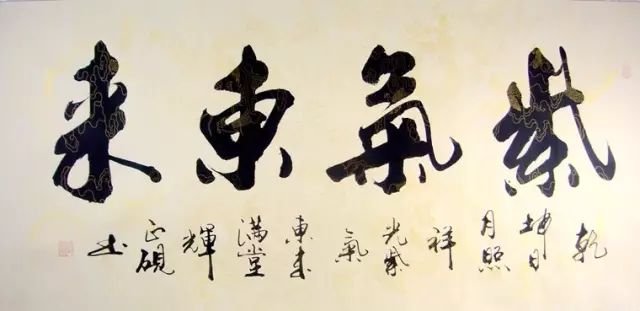 紫氣東来
乾
坤日
月照
祥
光紫
氣
東来
滿堂
輝
正硯
书